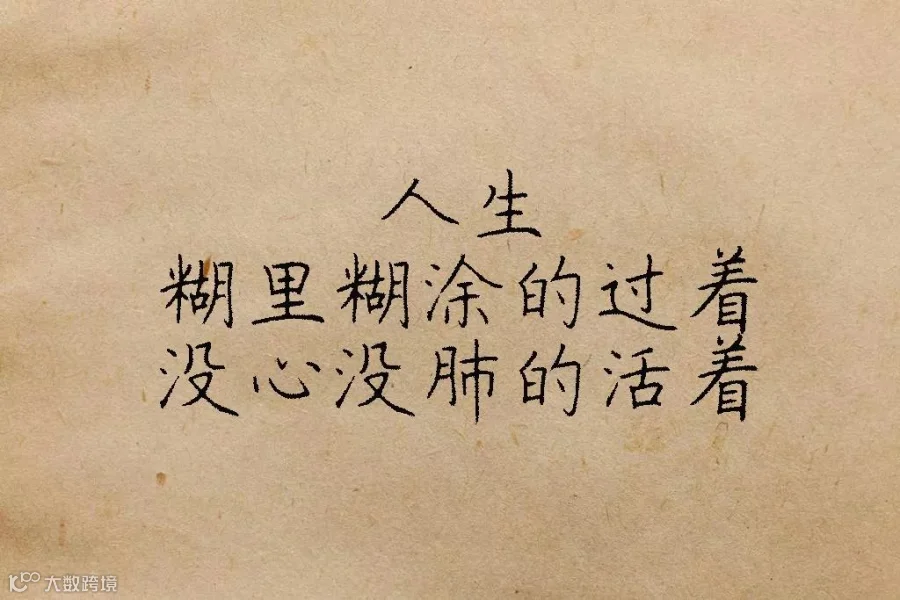 人生
糊里糊涂的过着
没心没肺的活着
大数跨境